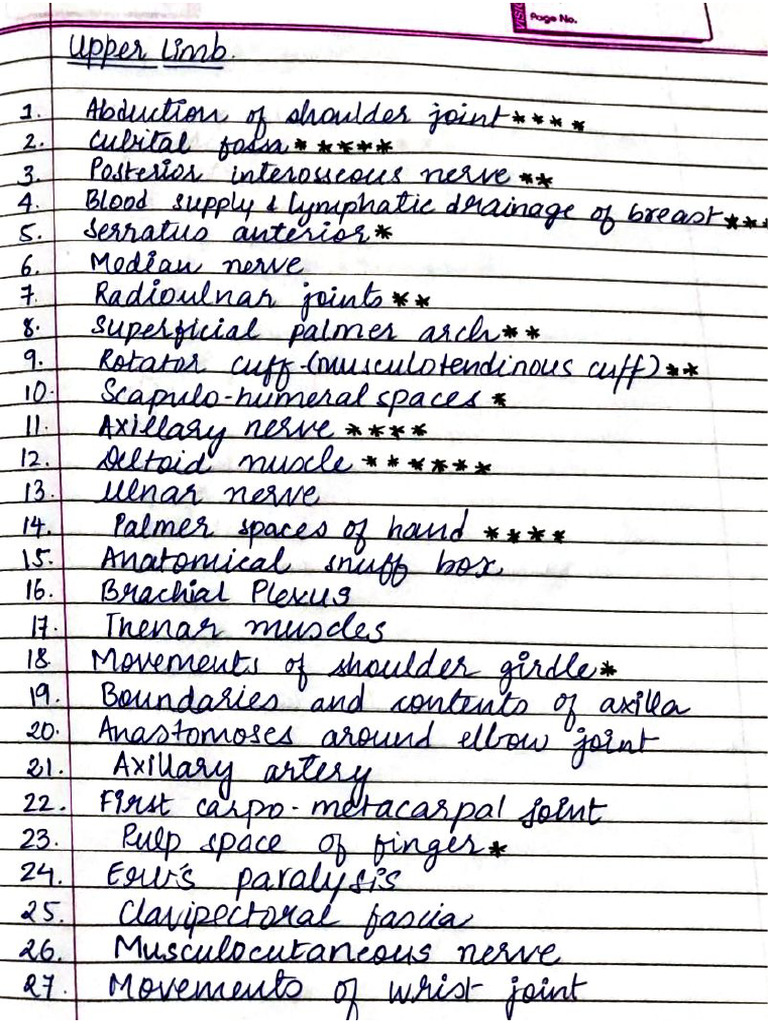 VISIO
Page No.
Upper Limb.
1. Abduction of shoulder joint****
2. Cubital fossa*****
3. Posterior interosseous nerve**
4. Blood supply & lymphatic drainage of breast***
5. Serratus anterior*
6. Median nerve
7. Radioulnar joints**
8. Superficial palmer arch**
9. Rotator cuff-(musculotendinous cuff)**
10. Scapulo-humeral spaces*
11. Axillary nerve****
12. Deltoid muscle******
13. Ulnar nerve
14. Palmer spaces of hand ****
15. Anatomical snuff box
16. Brachial Plexus
17. Thenar muscles
18. Movements of shoulder girdle*
19. Boundaries and contents of axilla
20. Anastomoses around elbow joint
21. Axillary artery
22. First carpo-metacarpal joint
23. Pulp space of finger*
24. Erb's paralysis
25. Clavipectoral fascia
26. Musculocutaneous nerve
27. Movements of wrist joint